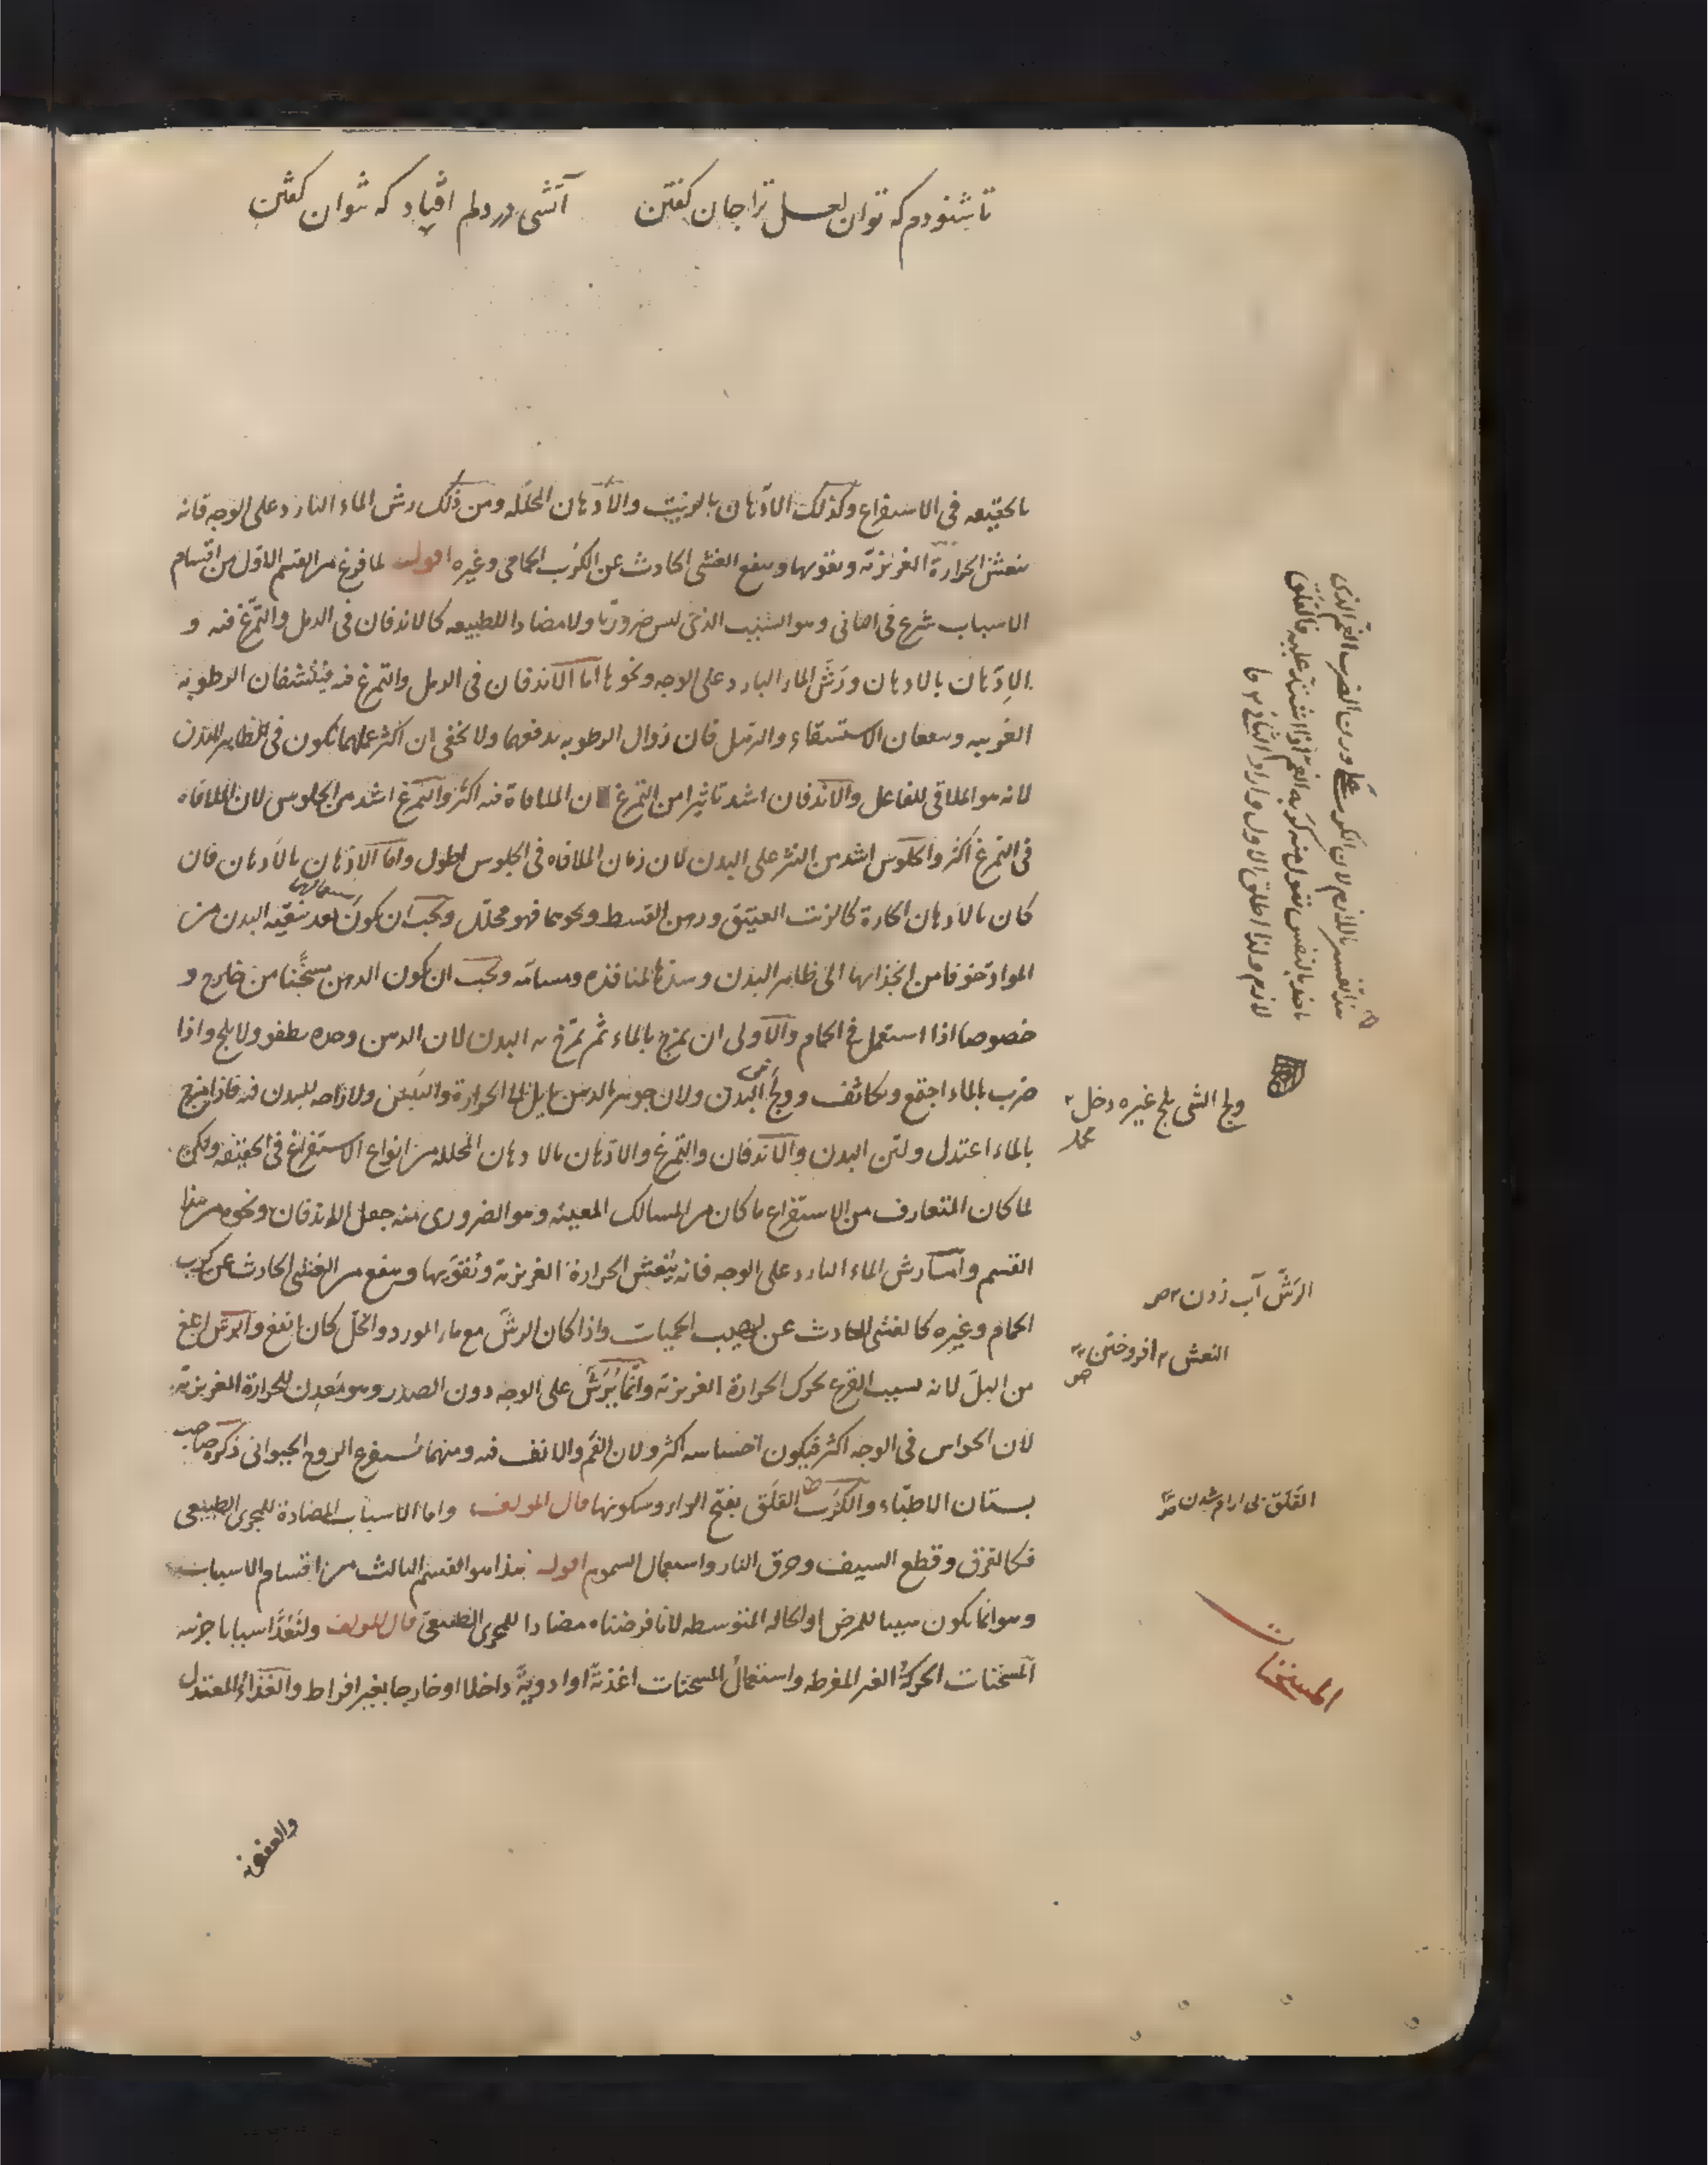 تا شنودم که توان لعل ترا جان گفتن آتشی در دلم افتاد که نتوان گفتن
بالحقيقه فى الاستفراغ وكذلك الادّهان بالزيت والأدهان المحلّله ومن ذلك رش الماء البارد على الوجه فانه
ينعش الحرارة الغريزية ويقويها وينفع الغشى الحادث عن الكرب الحمامى وغيره اقول لما فرغ من القسم الاول من اقسام
الاسباب شرع فى الثانى وهو السبب الذى ليس ضروريّا ولا مضادا للطبيعه كالاندفان فى الرمل والتمرّغ فيه و
الادّهان بالادهان ورَشّ الماء البارد على الوجه ونحوها اما الاندفان فى الرمل والتمرغ فيه فينشفان الرطوبه
الغريبه وينفعان الاستسقاء والترهل فان زوال الرطوبه يدفعهما ولا يخفى ان اكثر عملهما يكون فى ظاهر البدن
لانه هو الملاقى للفاعل والاندفان اشد تاثيرا من التمرغ لان الملاقاة فيه اكثر والتمرغ اشد من الجلوس لان الملاقاه
فى التمرغ اكثر والجلوس اشد من النثر على البدن لان زمان الملاقاه فى الجلوس اطول واما الادّهان بالأدهان فان
كان بالادهان الحارة كالزيت العتيق ودهن القسط ونحوهما فهو محلّل ويجب ان يكون استعمالها بعد تنقيه البدن من
المواد خوفا من انجذابها الى ظاهر البدن وسدها لمنافذه ومسامّه ويجب ان يكون الدهن مسخَّنا من خارج و
خصوصا اذا استعمل فى الحمام والاولى ان يمزج بالماء ثم تمرّخ به البدن لان الدهن وحده يطفو ولا يلج واذا
ضرب بالماء اجتمع وتكاثف وولج فى البدن ولان جوهر الدهن مايل الى الحرارة واليبس ولا راحه للبدن فيه فاذا مزج
بالماء اعتدل وليّن البدن والاندفان والتمرغ والادّهان بالادهان المحلله من انواع الاستفراغ فى الحقيقه ولكن
لما كان المتعارف من الاستفراغ ما كان من المسالك المعينه وهو الضرورى منه جعل الاندفان ونحوه من هذا
القسم وامـا رش الماء البارد على الوجه فانه يُنعش الحرارة الغريزية وتقويها وينفع من الغشى الحادث عن كرب
الحمام وغيره كالغشى الحادث عن لهيب الحميات واذا كان الرشّ مع ماء الورد والخل كان انفع والرش ابلغ
من البلّ لانه بسبب القرع يحرك الحرارة الغريزية وانّما يُرَشّ على الوجه دون الصدر وهو مَعدِن للحرارة الغريزية
لان الحواس فى الوجه اكثر فيكون احساسه اكثر ولان الفم والانف فيه ومنهما يستفرغ الروح الحيوانى ذكره صاحب
بستان الاطبّاء والكَرَب القلق بفتح الراء وسكونها قال المولف واما الاسباب المضادة للمجرى الطبيعى
فكالغرق وقطع السيف وحرق النار واستعمال السموم اقول هذا هو القسم الثالث من اقسام الاسباب
وهو انما يكون سببا للمرض او الحاله المتوسطه لانا فرضناه مضادا للمجرى الطبيعى قال المولف ولنَعُدَّ اسبابا جزئيه
المسخنات الحركةُ الغير المفرطه واستعمالُ المسخنات اغذيةً او ادويةً داخلا او خارجا بغير افراط والغذاءُ المعتدل
والعفونه
هذا تفسير باللازم لان الكرب على وزن الضرب الغم الذى
ياخذ بالنفس تقول منه كربه الغم اذا اشتد عليه والقلق
لازم له اطلق الاول واراد الثانى
ولج الشى يلج غيره دخل
الرَشّ آب زدن ص
النعش افروختن
ص
القلق بى ارام شدن
المسخنات